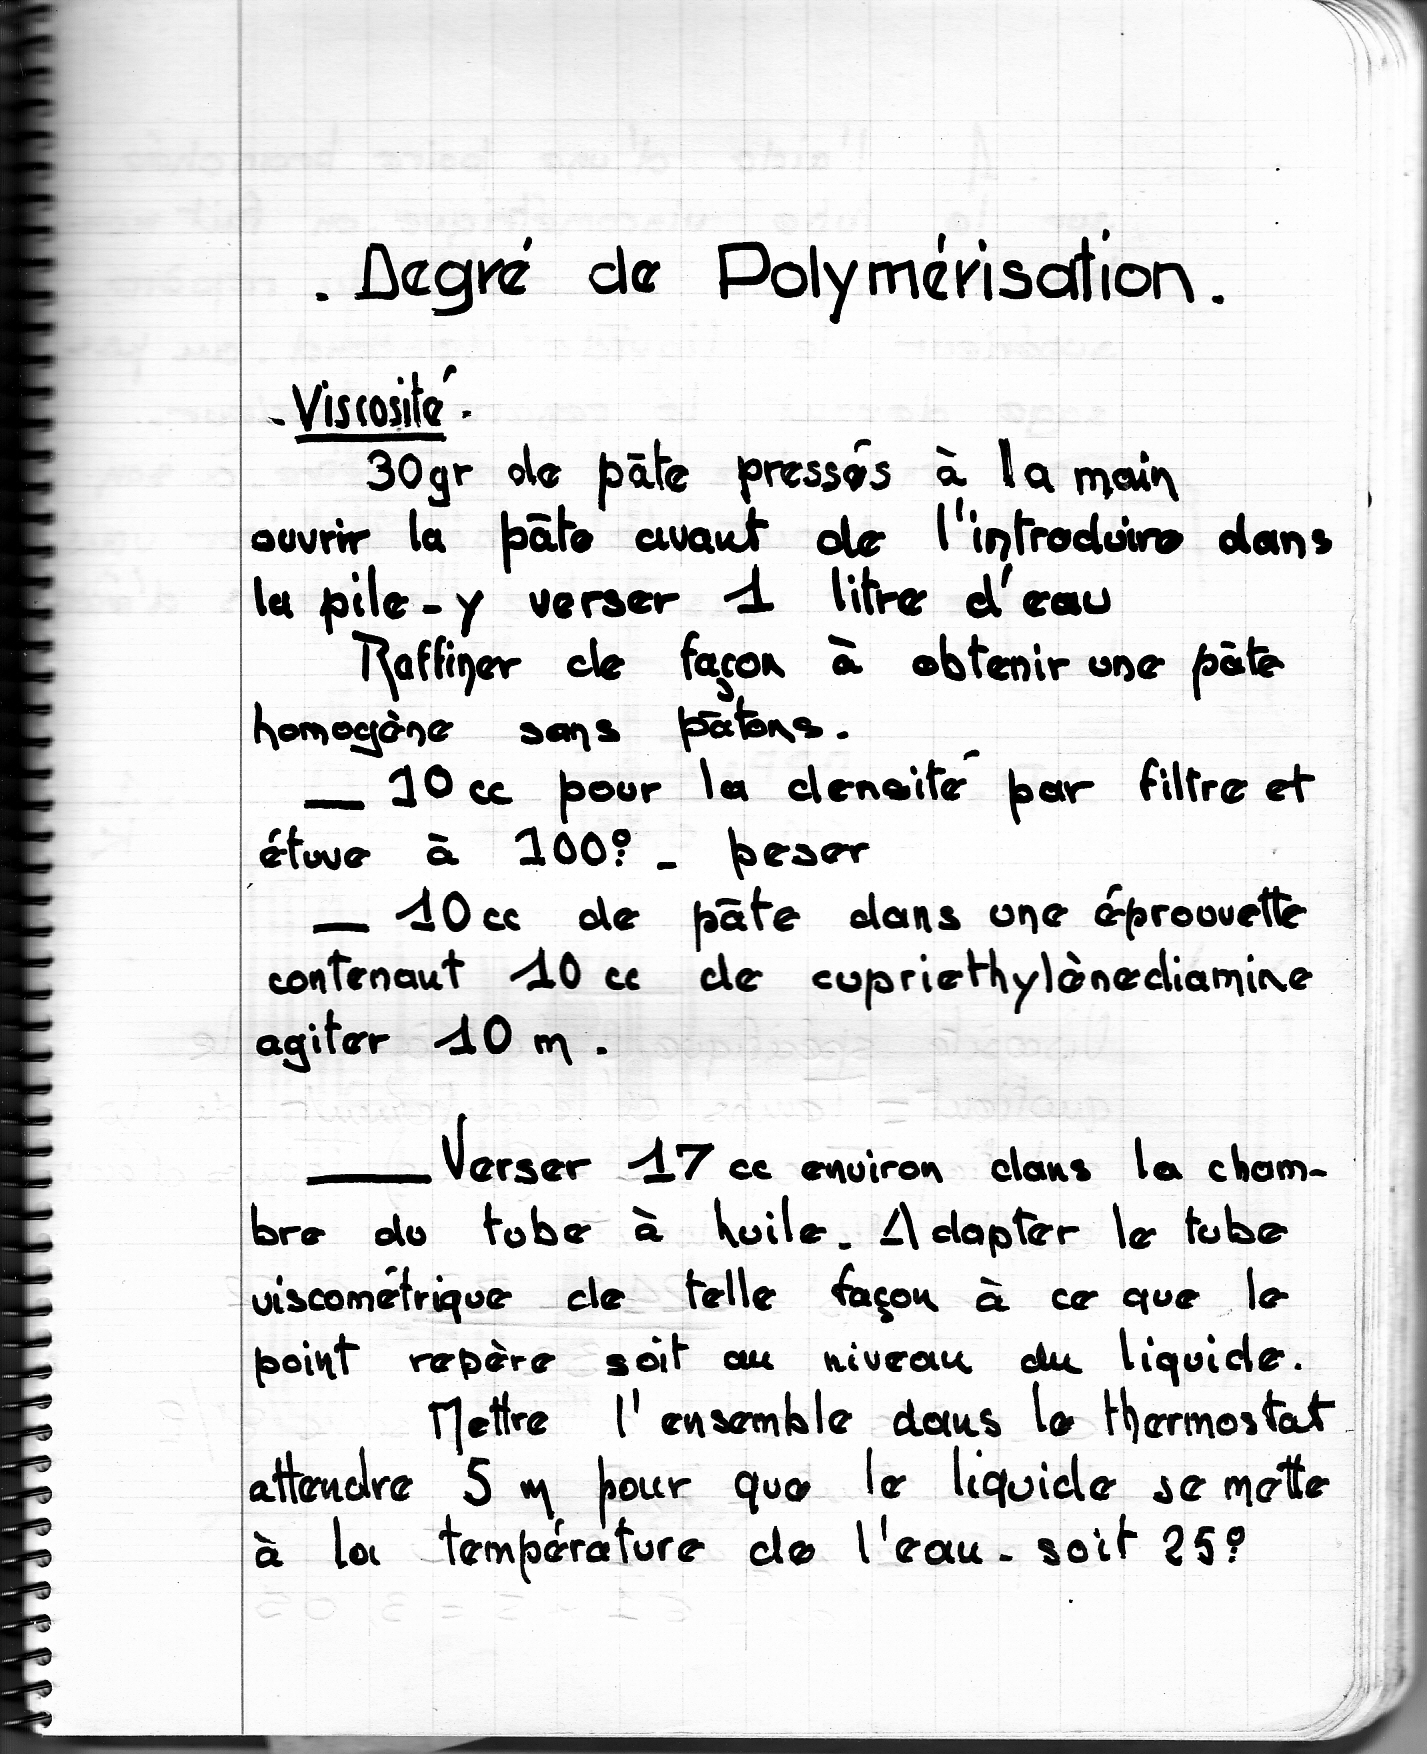 . Degré de Polymérisation.
- Viscosité.
30gr de pâte pressés à la main
ouvrir la pâte avant de l'introduire dans
la pile - y verser 1 litre d'eau
Raffiner de façon à obtenir une pâte
homogène sans pâtons.
— 10 cc pour la densité par filtre et
étuve à 100° - peser
— 10 cc de pâte dans une éprouvette
contenant 10 cc de cupriethylènediamine
agiter 10 m.
— Verser 17 cc environ dans la cham-
bre du tube à huile. Adapter le tube
viscométrique de telle façon à ce que le
point repère soit au niveau du liquide.
Mettre l'ensemble dans le thermostat
attendre 5 m pour que le liquide se mette
à la température de l'eau - soit 25°